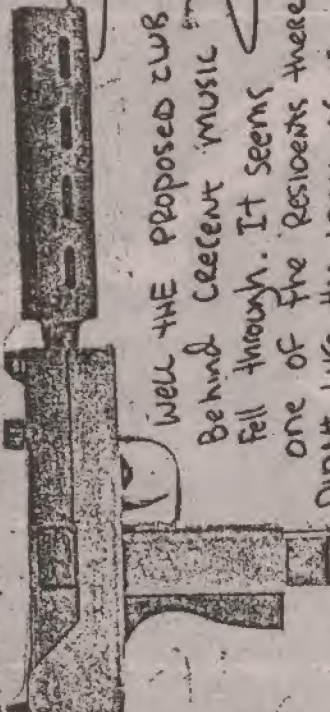 WELL THE PROPOSED CLUB
BEHIND CRECENT MUSIC
FELL through. It SEEMS
one of the Residents there